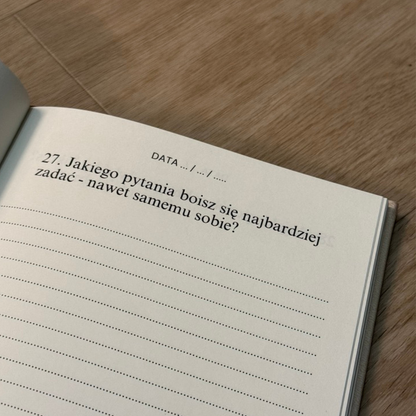 DATA ... / ... / .....
27. Jakiego pytania boisz się najbardziej
zadać - nawet samemu sobie?